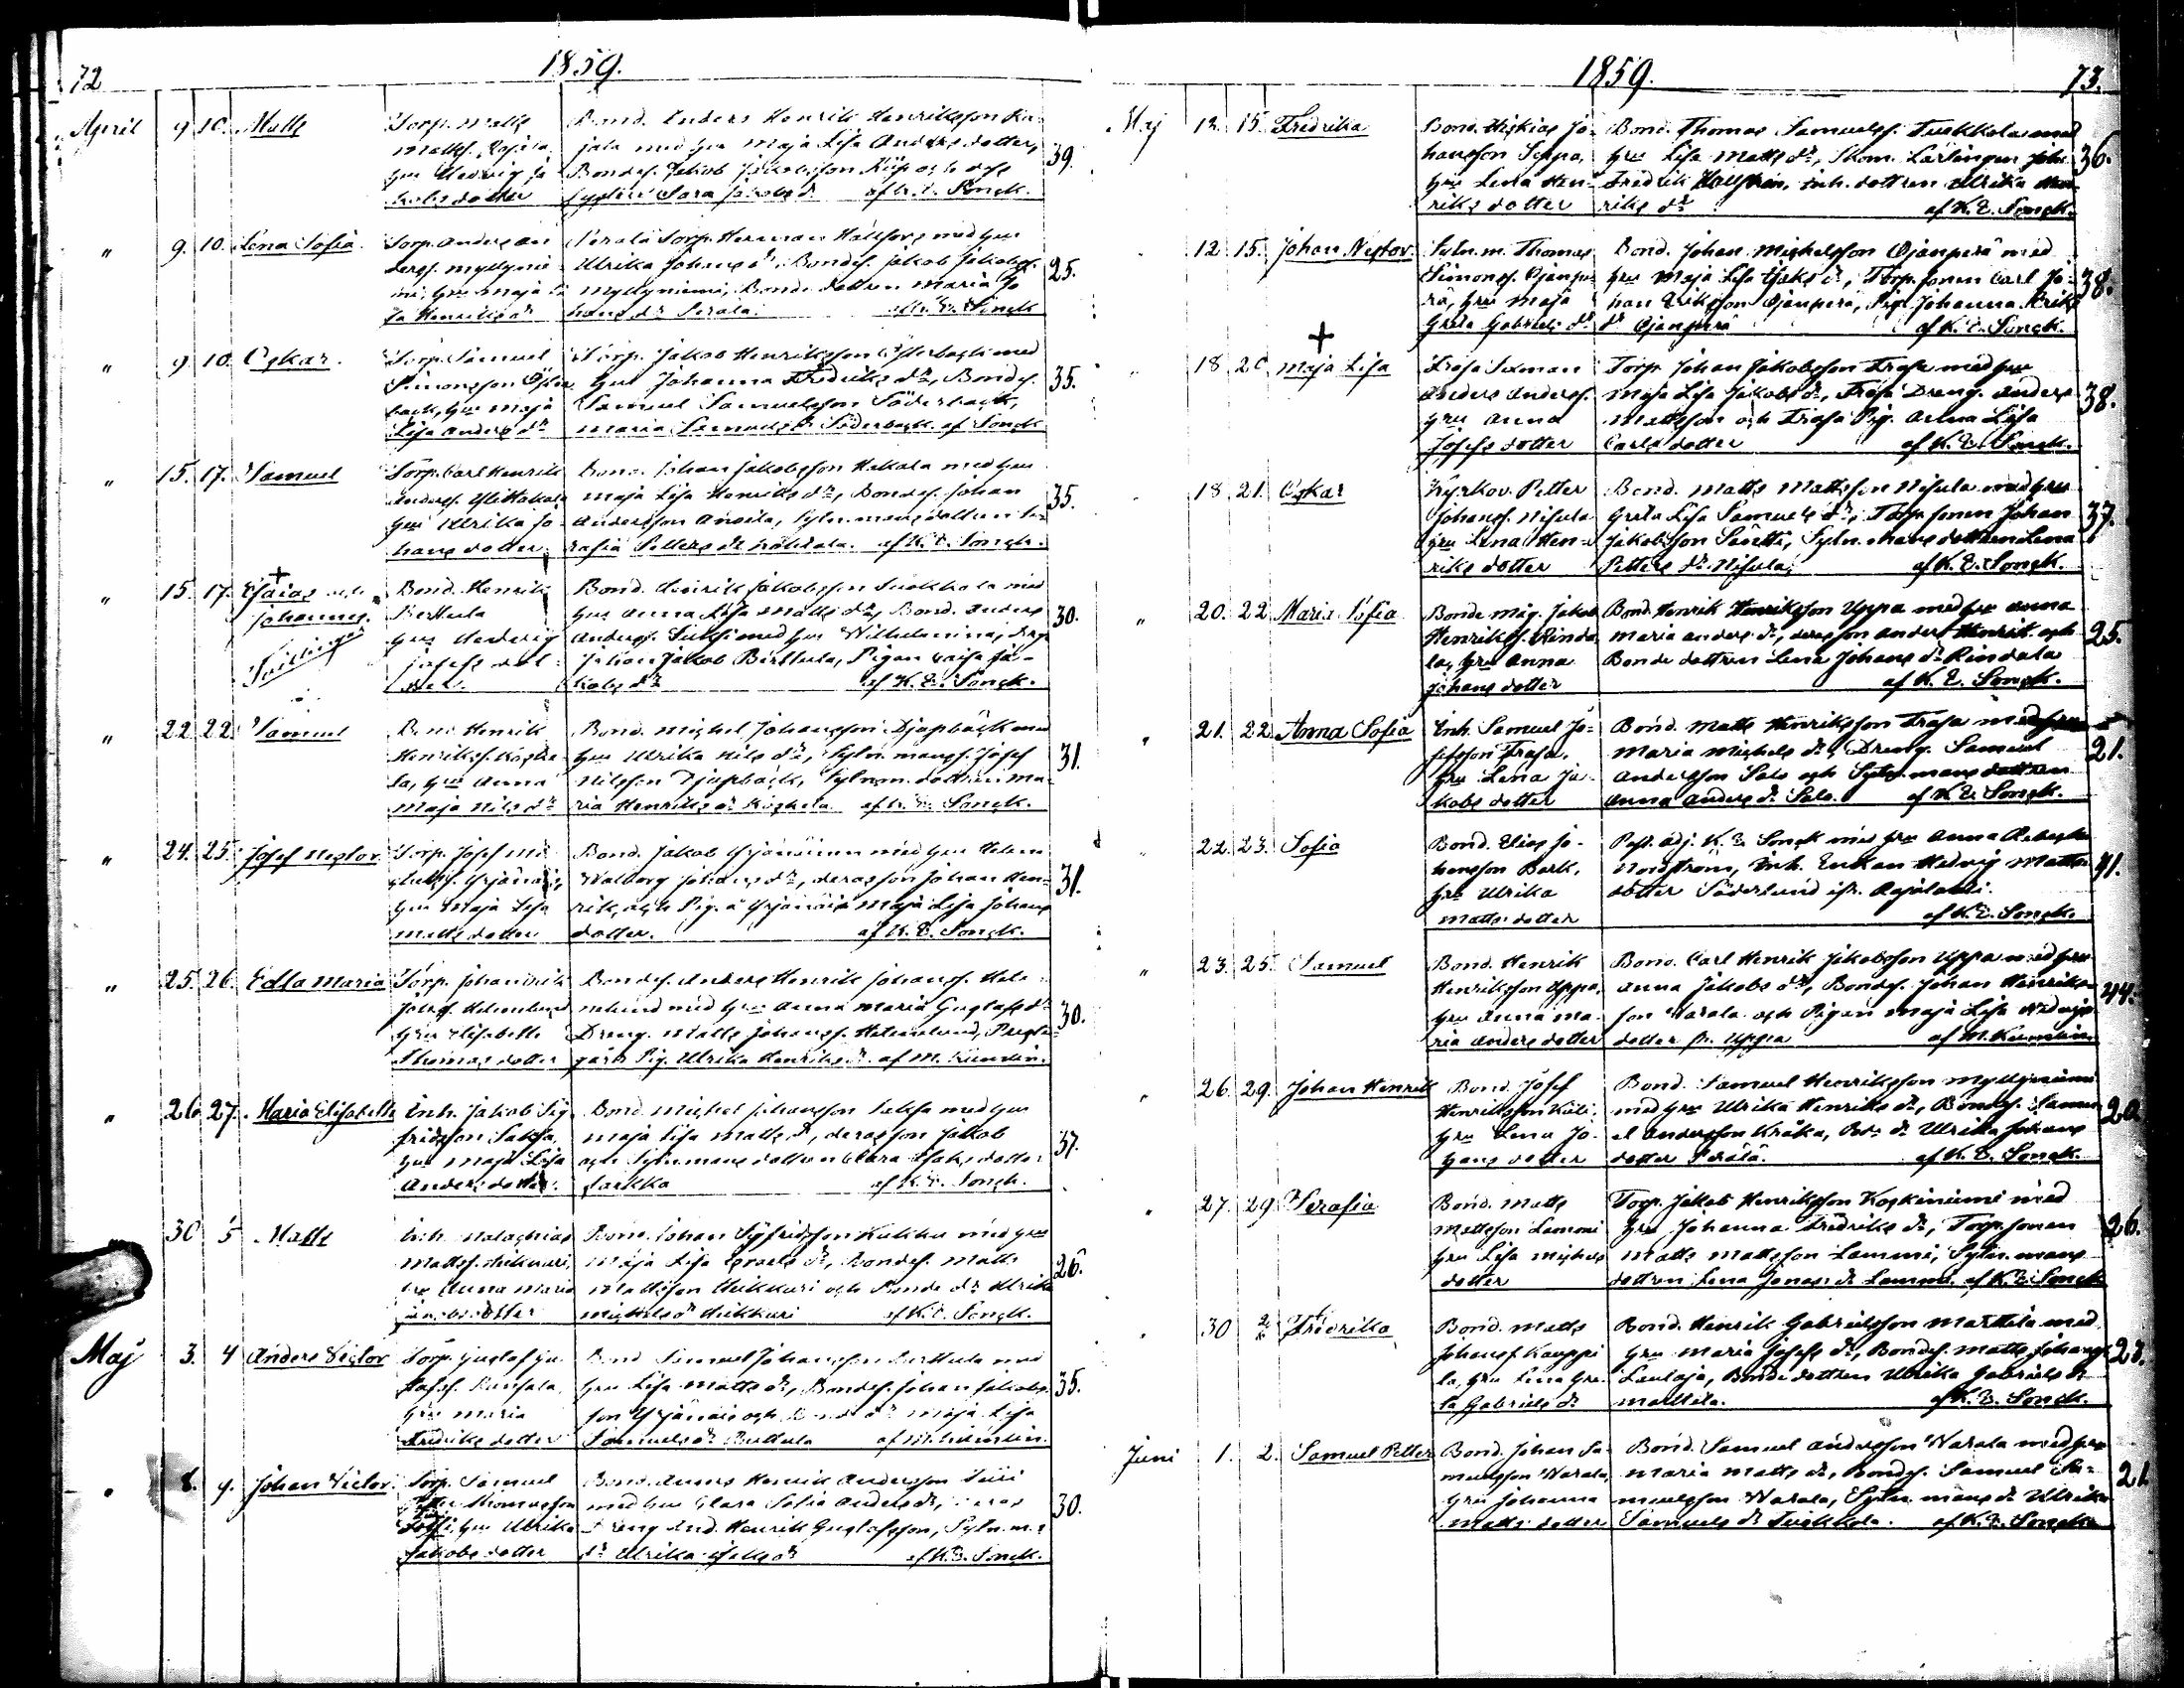 72
1859.
April 9 10. Matts
Torp. Matts
Hedwig Ja
kobs dotter
Bond. Anders Henrik Henriksson Ka-
jala med hru Maja Lisa Anders dotter,
Bondes. Jakob Jakobsson Kiip och dess
syster Sara Jakobs dr af K. E. Sonck.
39.
" 9. 10. Lena Sofia.
Torp. Anders An
derss. Myllynie
mi, hru Maja Li
sa Henriks dr
Perälä Torp. Herman Hällfors med hru
Ulrika Johans dr, Bondes. Jakob Jakobss.
Myllyniemi, Bonde dottren Maria Jo
hans dr Perälä. Sonck
25.
" 9. 10. Oskar.
Torp. Samuel
Simonsson Öster
back, hru Maja
Lisa Anders dr
Torp. Jakob Henriksson Österback med
hru Johanna Fredriks dr, Bondes.
Samuel Samuelsson Söderback,
Maria Samuels dr Söderback. af Sonck
35.
" 15. 17. Samuel
Torp. Carl Henrik
Anderss.
hru Ulrika Jo
hans dotter
Bond. Johan Jakobsson Hakala med hru
Maja Lisa Henriks dr, Bondes. Johan
Andersson Anoila, Sytn. mans dottren Se-
rafia Petters dr af K. E. Sonck.
35.
" 15. 17. Esaias och
Johannes.
Tvillingar
Bond. Henrik
Berttula
hru Hedwig
Josefs dot-
ter.
Bond. Henrik Jakobsson Tuokkola med
hru Anna Lisa Matts dr, Bond. Anders
Anderss. med hru Wilhelmina,
Johan Jakob Berttula, Pigan Caisa Ja-
kobs dr af K. E. Sonck.
30.
" 22. 22. Samuel
Bond. Henrik
Henrikss. Koske
la, hru Anna
Maja Nils dr
Bond. Michel Johansson Djupbäck med
hru Ulrika Nils dr, Sytn. manss. Josef
Nilsson Djupbäck, Sytn. m. dottren Ma-
ria Henriks dr Koskela af K. E. Sonck.
31.
" 24. 25. Josef Nestor.
Torp. Josef Mi
chelss. Yrjänäi
hru Maja Lisa
Matts dotter
Bond. Jakob Yrjänäinen med hru Helena
Walborg Johans dr, deras son Johan Hen-
rik, och Pig. å Yrjänäis Maja Lisa Johans
dotter. af K. E. Sonck.
31.
" 25. 26. Edla Maria
Torp. Johan Erik
Johss. Helenelund
hru Elisabeth
Thomas dotter
Bondes. Anders Henrik Johanss. Hele-
nelund med hru Anna Maria Gustafs dr
Dreng. Matts Johanss. Helenelund, Prest-
gårds Pig. Ulrika Henriks dr. af M. Kumlin.
30.
" 26. 27. Maria Elisabeth
Inh. Jakob Sig
fridsson Saksa,
hru Maja Lisa
Anders dotter
Bond. Michel Johansson Saksa med hru
Maja Lisa Matts dr, deras son Jakob
och Sytn. mans dottren Clara Isaks dotter
Sarkka af K. E. Sonck.
37.
30 5 Matts
Inh. Malachias
Mattss. Hikkuri,
hru Anna Maria
dotter
Bond. Johan Sigfridsson Kukku med hru
Maja Lisa Israels dr, Bondes. Matts
Mattsson Hikkuri och Bonde dr Ulrika
Michels dr Hikkuri af K. E. Sonck.
26.
Maj 3. 4 Anders Victor
Torp. Gustaf Gu
stafss.
hru Maria
Fredriks dotter
Bond. Samuel Johansson med
hru Lisa Matts dr, Bondes. Johan Jakobs-
son Yrjänäis och Bonde dr Maja Lisa
Samuels dr af M. Kumlin.
35.
" 8. 9. Johan Victor.
Torp. Samuel
Thomasson
hru Ulrika
Jakobs dotter
Bond. Anders Henrik Andersson
med hru Clara Sofia Anders dr, deras
Dreng And. Henrik Gustafsson, Sytn. m.s
dr Ulrika Isaks dr af K. E. Sonck.
30.
1859.
73.
Maj 12. 15. Fredrika
Bond. Hiskias Jo-
hansson Seppa,
hru Lena Hen-
riks dotter
Bond. Thomas Samuelss. Tuokkola med
hru Lisa Matts dr, Skom. Lärlingen Joh.
Fredrik Hällström, inh. dottren Ulrika Hen-
riks dr af K. E. Sonck.
36.
12 15. Johan Nestor.
Sytn. m. Thomas
Simonss. Ojanpe
rä, hru Maja
Greta Gabriels dr
Bond. Johan Michelsson Ojanperä med
hru Maja Lisa Isaks dr, Torp. sonen Carl Jo-
han Eriksson Ojanperä, Pig. Johanna Eriks
dr Ojanperä af K. E. Sonck.
38.
18 20 Maja Lisa
Frosa Soknan
Anders Anderss.
hru Anna
Josefs dotter
Torp. Johan Jakobsson Frosa med hru
Maja Lisa Jakobs dr, Frosa Dreng. Anders
Mattsson och Frosa Pig. Anna Lisa
Carls dotter af K. E. Sonck.
38.
18 21. Oskar
Kyrkov. Petter
Johanss. Nisula
hru Lena Hen-
riks dotter
Bond. Matts Mattsson Nisula med hru
Greta Lisa Samuels dr, Torp. sonen Johan
Jakobsson Säntti, Sytn. mans dottren Lena
Petters dr Nisula, af K. E. Sonck.
37.
" 20. 22 Maria Sofia
Bonde Måg. Jakob
Henrikss. Rinda
la, hru Anna
Johans dotter
Bond. Henrik Henriksson Uppa med hru Anna
Maria Anders dr, deras son Anders Henrik och
Bonde dottren Lena Johans dr Rindala
af K. E. Sonck.
25.
" 21. 22. Anna Sofia
Inh. Samuel Jo-
sefsson Frosa.
hru Lena Ja-
kobs dotter
Bond. Matts Henriksson Frosa med hru
Maria Michels dr, Dreng. Samuel
Andersson Salo och Sytn. mans dottren
Anna Anders dr Salo. af K. E. Sonck.
21.
22. 23. Sofia
Bond. Elias Jo-
hansson Bark,
hru Ulrika
Matts dotter
Past. adj. K. E. Sonck med hru Anna Rebecka
Nordström, Inh. Enkan Hedvig Matts-
dotter Söderlund ifr.
af K. E. Sonck.
41.
" 23. 25. Samuel
Bond. Henrik
Henriksson Uppa,
hru Anna Ma-
ria Anders dotter
Bond. Carl Henrik Jakobsson Uppa med hru
Anna Jakobs dr, Bondes. Johan Henriks-
son Warala och Pigan Maja Lisa
dotter fr. Uppa af M. Kumlin.
44.
" 26. 29. Johan Henrik
Bond. Josef
Henriksson
hru Lena Jo-
hans dotter
Bond. Samuel Henriksson Myllyniemi
med hru Ulrika Henriks dr, Bondes. Samu-
el Andersson Kråka, Bde dr Ulrika Johans
dotter Perälä. af K. E. Sonck.
20.
" 27. 29 Serafia
Bond. Matts
Mattsson Lammi
hru Lisa Michels
dotter
Torp. Jakob Henriksson Koskiniemi med
hru Johanna Fredriks dr, Torp. sonen
Matts Mattsson Lammi, Sytn. mans
dottren Lena Jonas dr Lammi. af K. E. Sonck.
26.
" 30 2/6 Fredrika
Bond. Matts
Johanss. Kauppi
la, hru Lena Gre
ta Gabriels dr
Bond. Henrik Gabrielsson Marttila med
hru Maria Josefs dr, Bondes. Matts Johanss.
Laulaja, Bonde dottren Ulrika Gabriels dr
Marttila. af K. E. Sonck.
23.
Juni 1. 2. Samuel Petter
Bond. Johan Sa-
muelsson Warala,
hru Johanna
Matts dotter
Bond. Samuel Andersson Warala med hru
Maria Matts dr, Bondes. Samuel Sa-
muelsson Warala, Sytn. mans dr Ulrika
Samuels dr Tuokkola. af K. E. Sonck
21